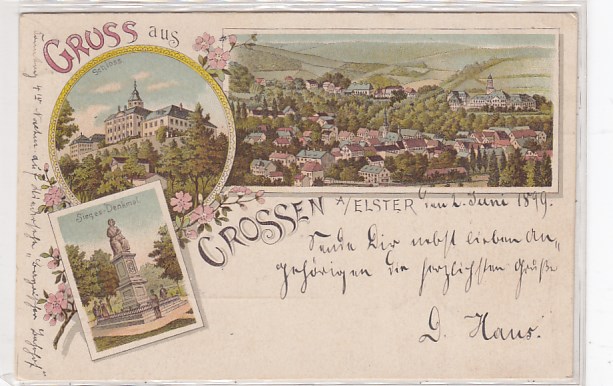 GRUSS aus
Schloss
Sieges-Denkmal
CROSSEN A/ELSTER
den 2. Juni 1899.
Sende Dir nebst lieben An„
gehörigen die herzlichsten Grüße
D. Hans.